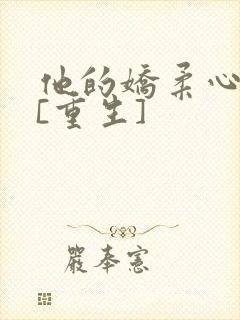 他的嬌柔心
[重生]
嚴奉憲